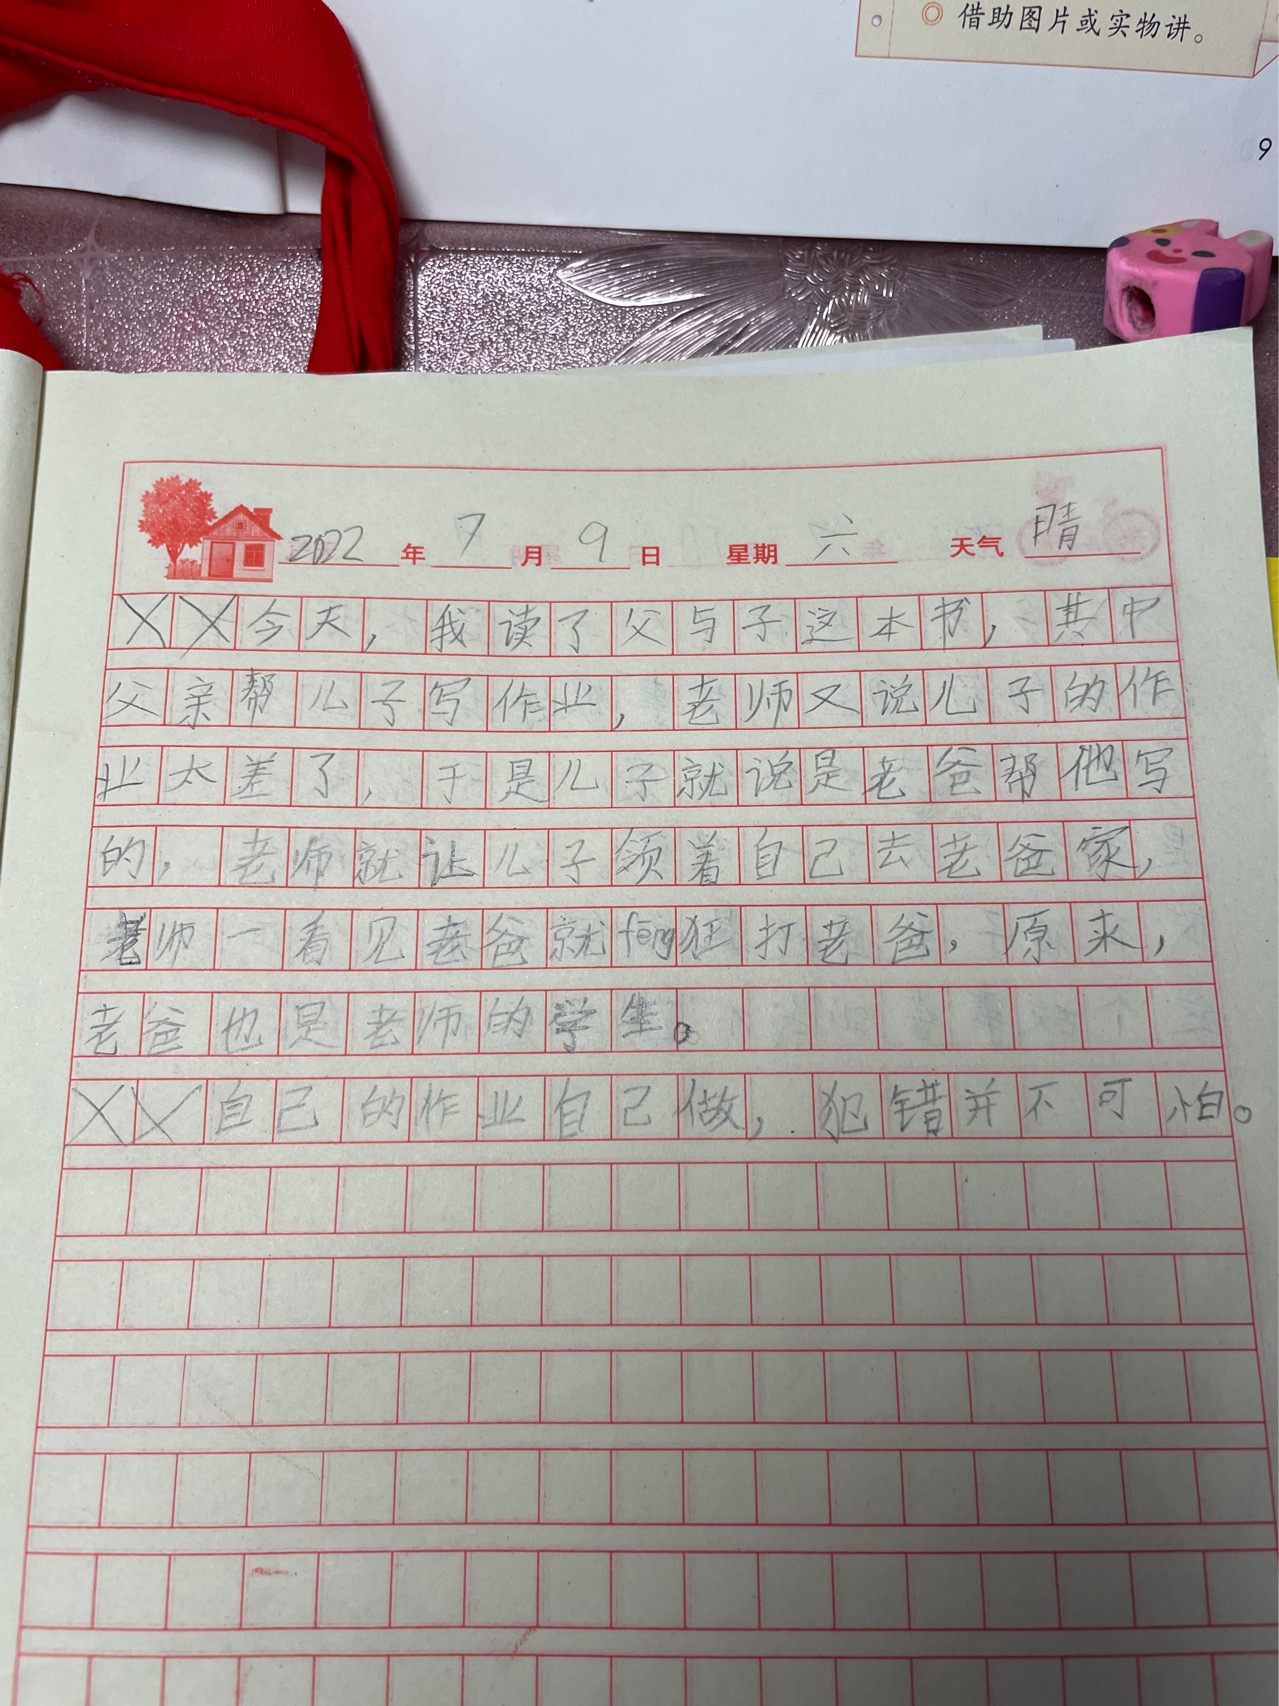 借助图片或实物讲。
9
2022年7月9日 星期六 天气晴
XX今天，我读了父与子这本书，其中
父亲帮儿子写作业，老师又说儿子的作
业太差了，于是儿子就说是老爸帮他写
的，老师就让儿子领着自己去老爸家，
老师一看见老爸就feng狂打老爸，原来，
老爸也是老师的学生。
XX自己的作业自己做，犯错并不可怕。